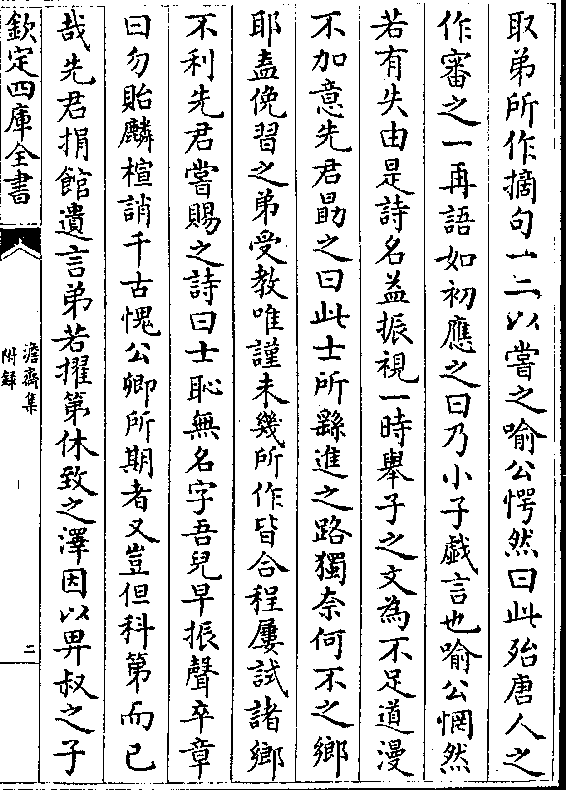 取弟所作摘句一二以嘗之喻公愕然曰此殆唐人之
作審之一再語如初應之曰乃小子戲言也喻公惘然
若有失由是詩名益振視一時舉子之文為不足道漫
不加意先君勗之曰此士所繇進之路獨奈何不之鄉
耶盍俛習之弟受教唯謹未幾所作皆合程屢試諸鄉
不利先君嘗賜之詩曰士恥無名字吾兒早振聲卒章
曰勿貽麟楦誚千古愧公卿所期者又豈但科第而已
哉先君捐館遺言弟若擢第休致之澤因以畀叔之子
欽定四庫全書
澹齋集
附録
二